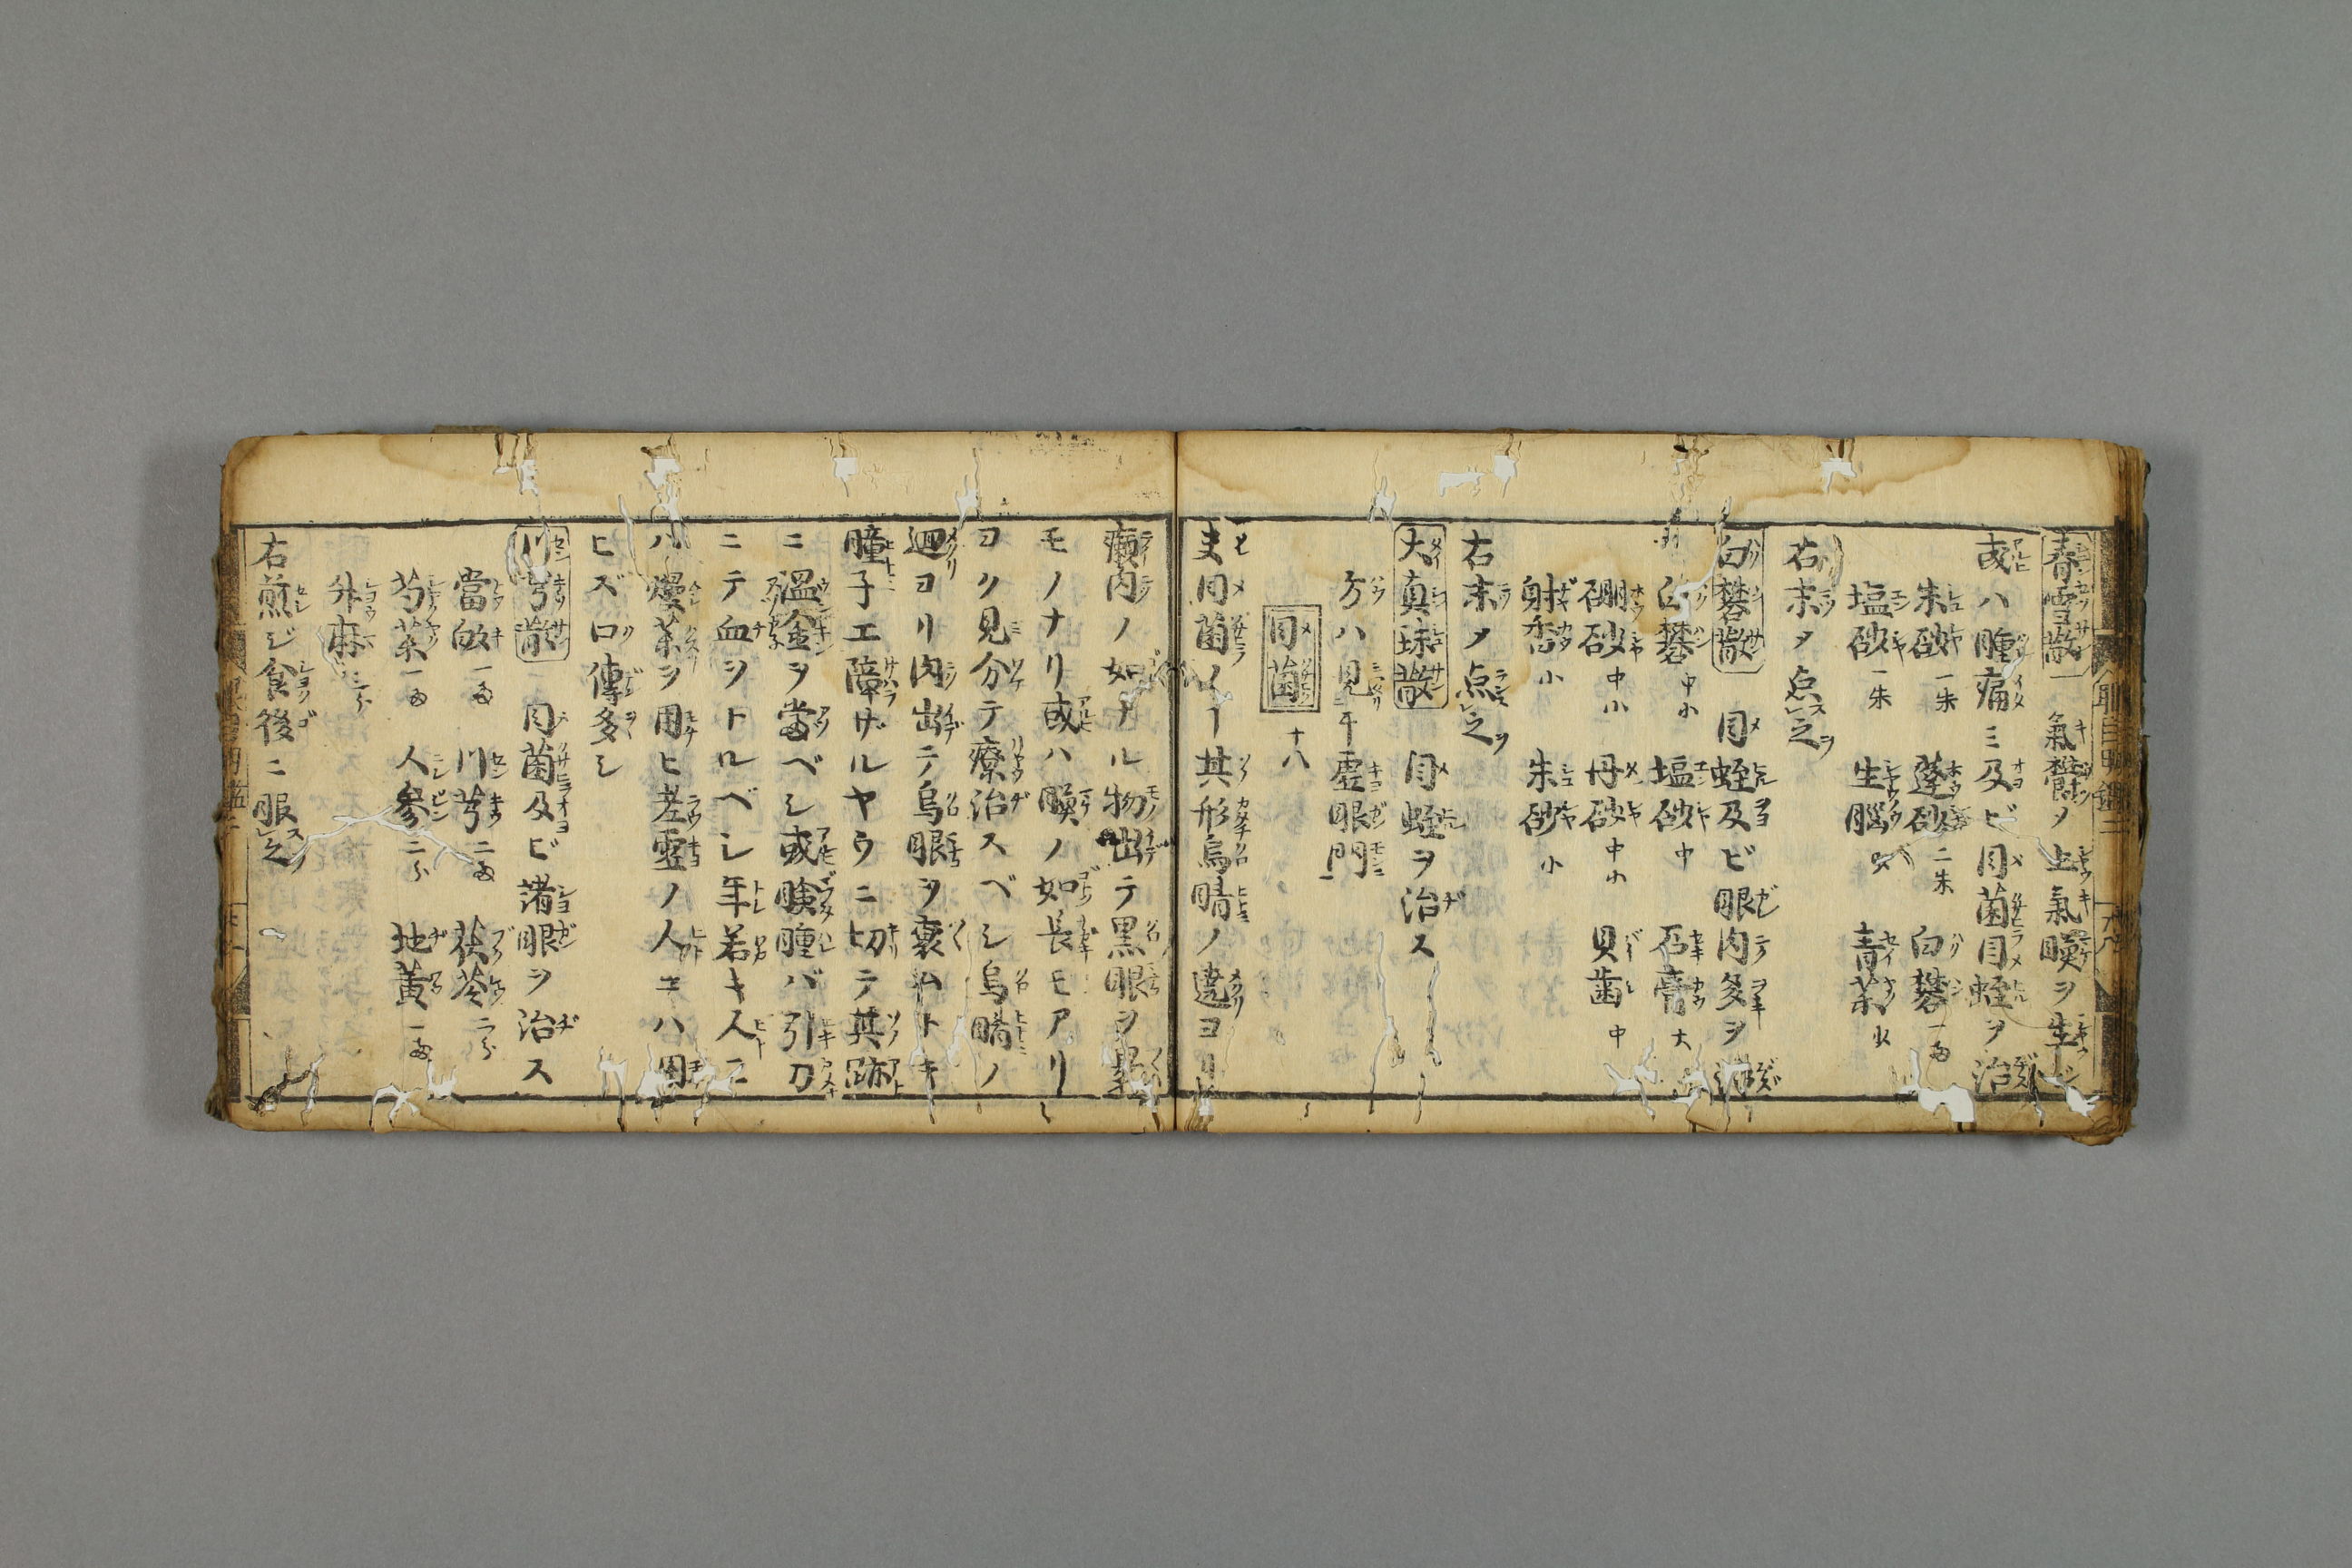 春雪散 氣欝ノ上氣瞙ヲ生ジ
或ハ腫痛ミ及ビ目茵目蛭ヲ治
朱砂一朱 蓬砂二朱 白礬一匁
塩砂一朱 生腦 青茶
右末〆点之
白礬散 目蛭及ビ眼肉多ヲ治
白礬中小 塩砂中 石膏大
硼砂中小 丹砂中小 貝歯中
射香小 朱砂小
右末〆点之
大真珠散 目蛭ヲ治ス
方ハ見于虚眼門
目茵 十八
夫目茵ノ其形烏睛ノ遶ヨリ
癩肉ノ如ナル物出テ黒眼ヲ
モノナリ或ハ瞙ノ如長モアリ
ヨク見分テ療治スベシ烏睛ノ
廻ヨリ肉出テ烏眼ヲ裹ムトキ
瞳子エ障ザルヤウニ切テ其跡
ニ温金ヲ當ベシ或瞼腫バ引刀
ニテ血ヲトルベシ年若キ人ニ
ハ煖茶ヲ用ヒ老虚ノ人ニハ用
ヒズ口傳多シ
川芎散 目茵及ビ諸眼ヲ治ス
當皈一匁 川芎二匁 茯苓二分
芍茶一匁 人參二分 地黄一匁
升麻二分
右煎ジ食後ニ服之